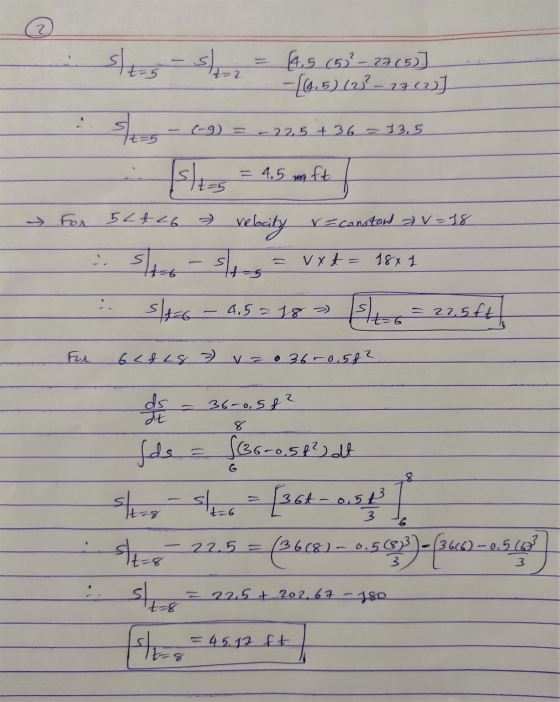 2
∴ S|t=5 − S|t=2 = [4.5 (5)² − 27(5)]
−[(4.5)(2)² − 27(2)]
∴ S|t=5 − (−9) = −22.5 + 36 = 13.5
∴ S|t=5 = 4.5 ft
→ For 5<t<6 ⇒ velocity v=constant ⇒ v=18
∴ S|t=6 − S|t=5 = v×t = 18×1
∴ S|t=6 − 4.5 = 18 ⇒ S|t=6 = 22.5 ft
For 6<t<8 ⇒ v = 36−0.5t²
ds/dt = 36−0.5t²
∫ds = ∫₆⁸(36−0.5t²)dt
S|t=8 − S|t=6 = [36t − 0.5t³/3]₆⁸
∴ S|t=8 − 22.5 = (36(8) − 0.5(8)³/3) − [36(6) − 0.5(6)³/3]
∴ S|t=8 = 22.5 + 202.67 − 180
S|t=8 = 45.17 ft